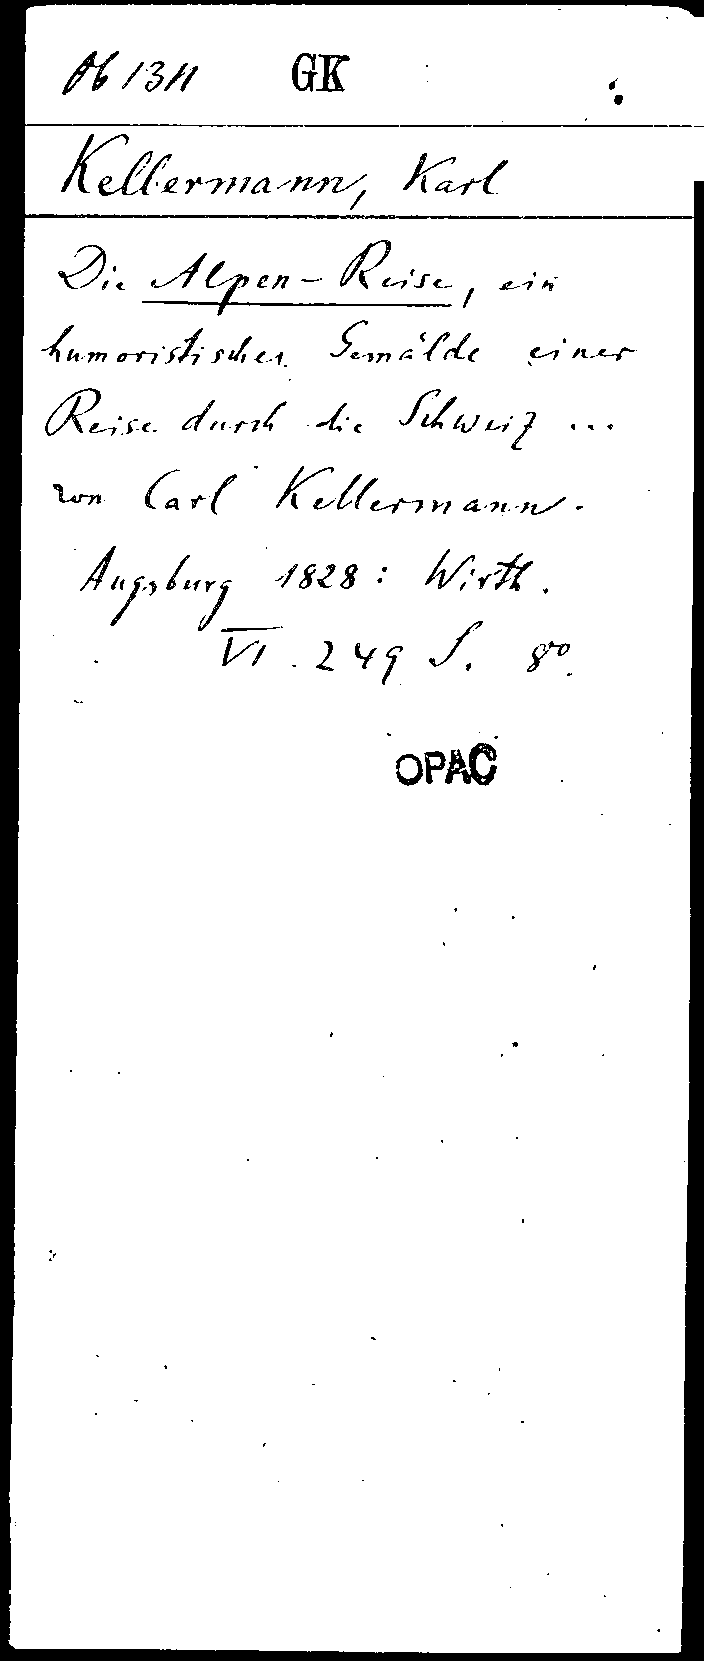 Ob 1311 GK
Kellermann, Karl
Die Alpen-Reise, ein
humoristisches Gemälde einer
Reise durch die Schweiz ...
von Carl Kellermann.
Augsburg 1828: Wirth.
VI. 249 S. 8°.
OPAC